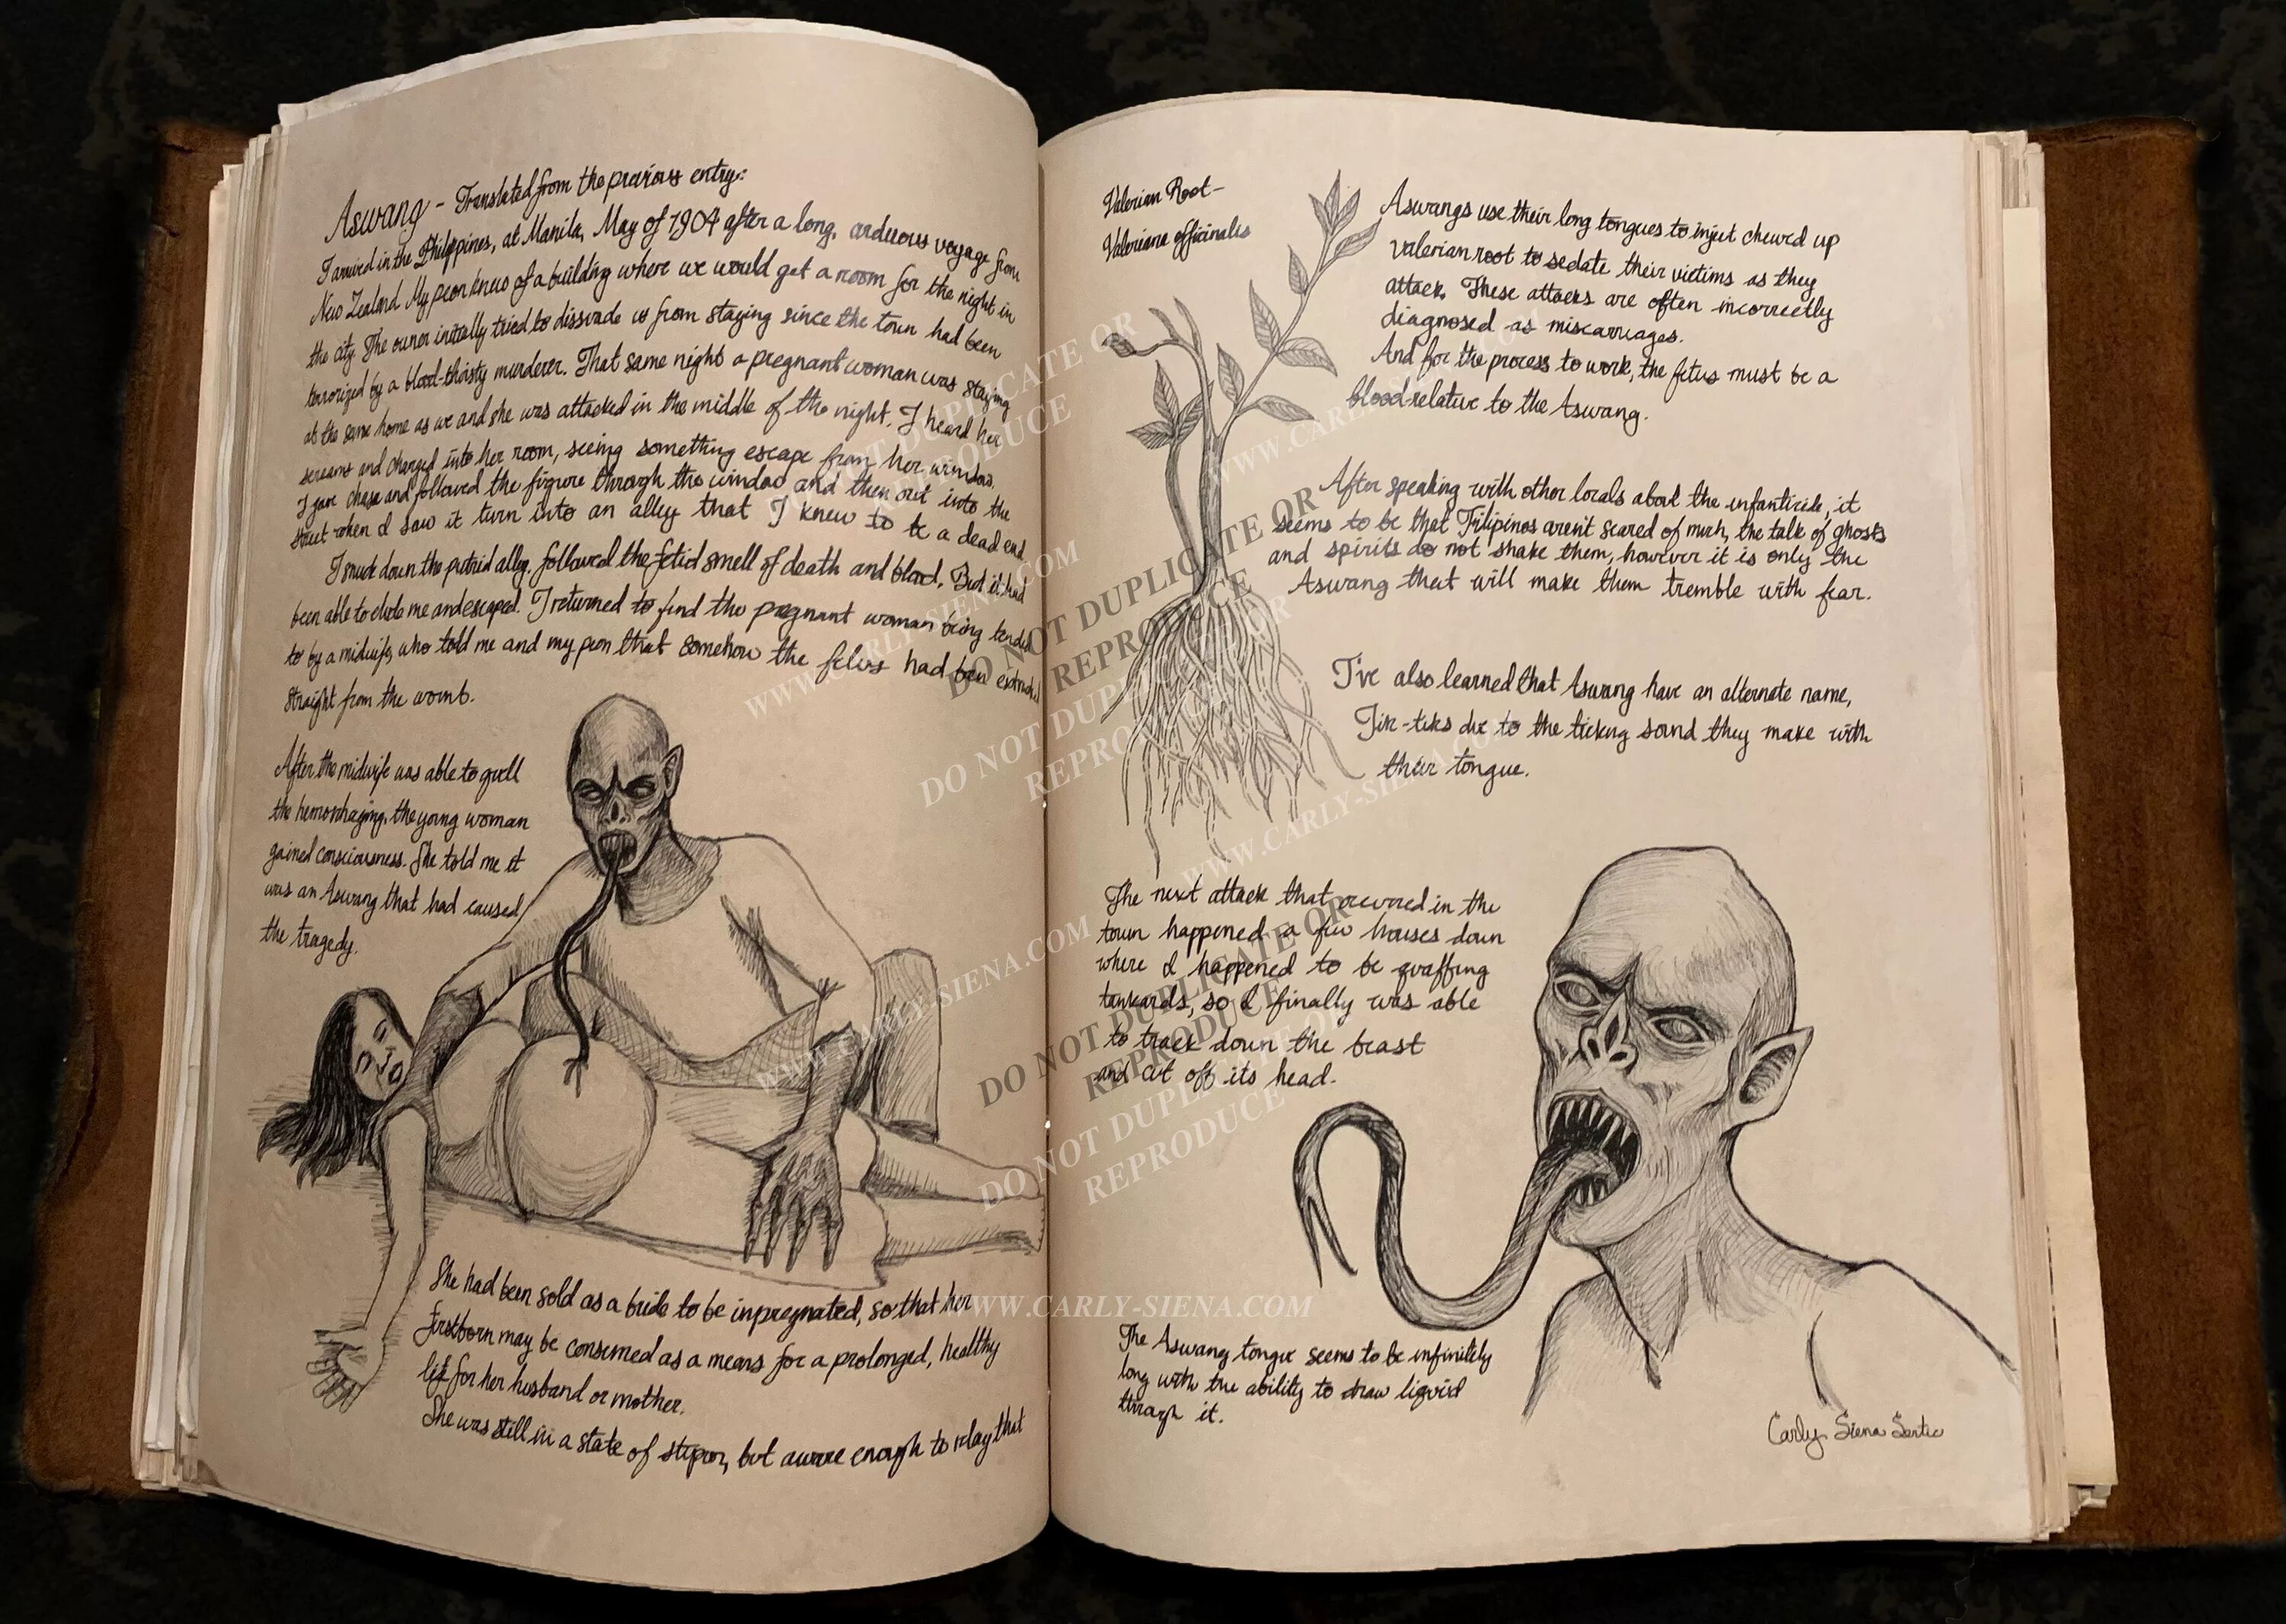 Aswang - Translated from the previous entry:
I arrived in the Philippines, at Manila, May of 1904 after a long, arduous voyage from
New Zealand. My peon knew of a building where we would get a room for the night in
the city. The owner initially tried to dissuade us from staying since the town had been
terrorized by a blood-thirsty murderer. That same night a pregnant woman was staying
at the same home as we and she was attacked in the middle of the night. I heard her
screams and charged into her room, seeing something escape from her window.
I gave chase and followed the figure through the window and then out into the
street when I saw it turn into an alley that I knew to be a dead end.
I snuck down the putrid alley, followed the fetid smell of death and blood. But it had
been able to elude me and escaped. I returned to find the pregnant woman being tended
to by a midwife, who told me and my peon that somehow the fetus had been extracted
straight from the womb.
After the midwife was able to quell
the hemorrhaging, the young woman
gained consciousness. She told me it
was an Aswang that had caused
the tragedy.
She had been sold as a bride to be inpregnated, so that her
firstborn may be consumed as a means for a prolonged, healthy
life for her husband or mother.
She was still in a state of stupor, but aware enough to relay that
Valerian Root -
Valeriana officinalis
Aswangs use their long tongues to inject chewed up
valerian root to sedate their victims as they
attack. These attacks are often incorrectly
diagnosed as miscarriages.
And for the process to work, the fetus must be a
blood relative to the Aswang.
After speaking with other locals about the infanticide, it
seems to be that Filipinos aren't scared of much, the talk of ghosts
and spirits do not shake them, however it is only the
Aswang that will make them tremble with fear.
I've also learned that Aswang have an alternate name,
Tik-tiks due to the ticking sound they make with
their tongue.
The next attack that occurred in the
town happened a few houses down
where I happened to be quaffing
tankards, so I finally was able
to track down the beast
and cut off its head.
The Aswang tongue seems to be infinitely
long with the ability to draw liquid
through it.
Carly Siena Sertic
DO NOT DUPLICATE OR
REPRODUCE
WWW.CARLY-SIENA.COM
DO NOT DUPLICATE OR
REPRODUCE
WWW.CARLY-SIENA.COM
DO NOT DUPLICATE OR
REPRODUCE
WWW.CARLY-SIENA.COM
WWW.CARLY-SIENA.COM
DO NOT DUPLICATE OR
REPRODUCE
DO NOT DUPLICATE OR
REPRODUCE
WWW.CARLY-SIENA.COM
WWW.CARLY-SIENA.COM